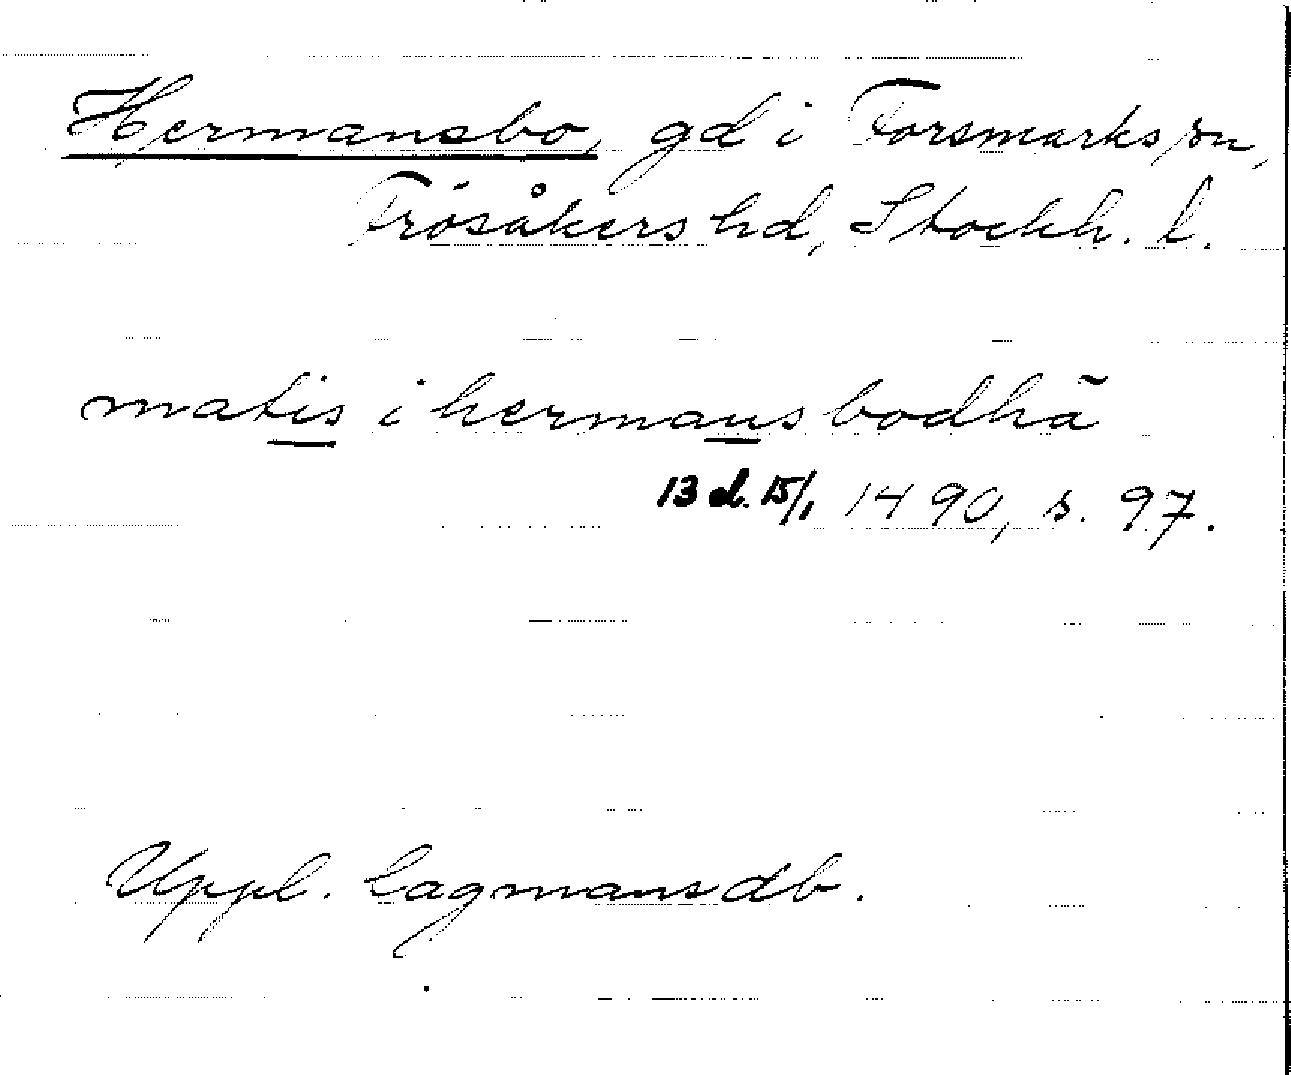 Hermansbo, gd i Forsmarks sn,
Frösåkers hd, Stockh. l.
matis i hermans bodhā
13 d. 15/1 1490, s. 97.
Uppl. Lagmansdb.